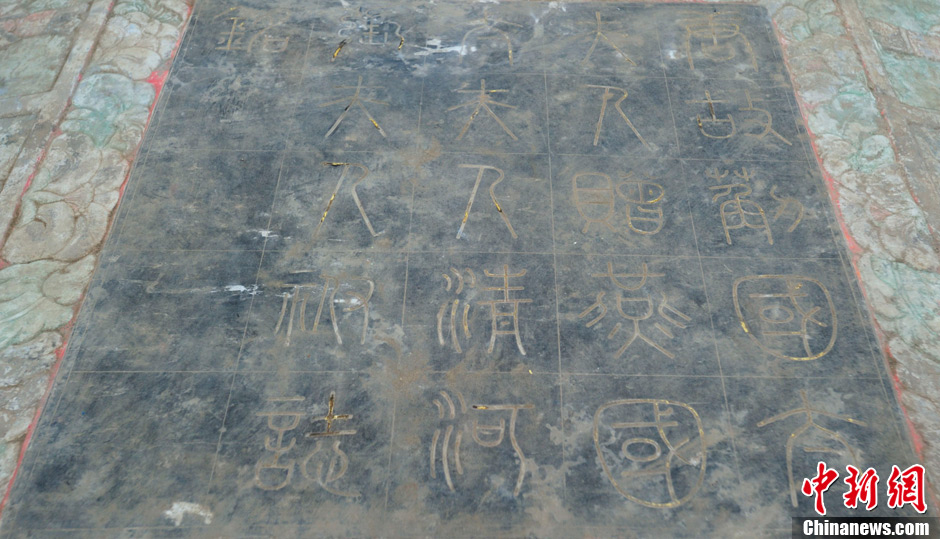 唐故薊國大
夫人贈燕國
大夫人清河
張夫人祔誌
銘
中新网
Chinanews.com